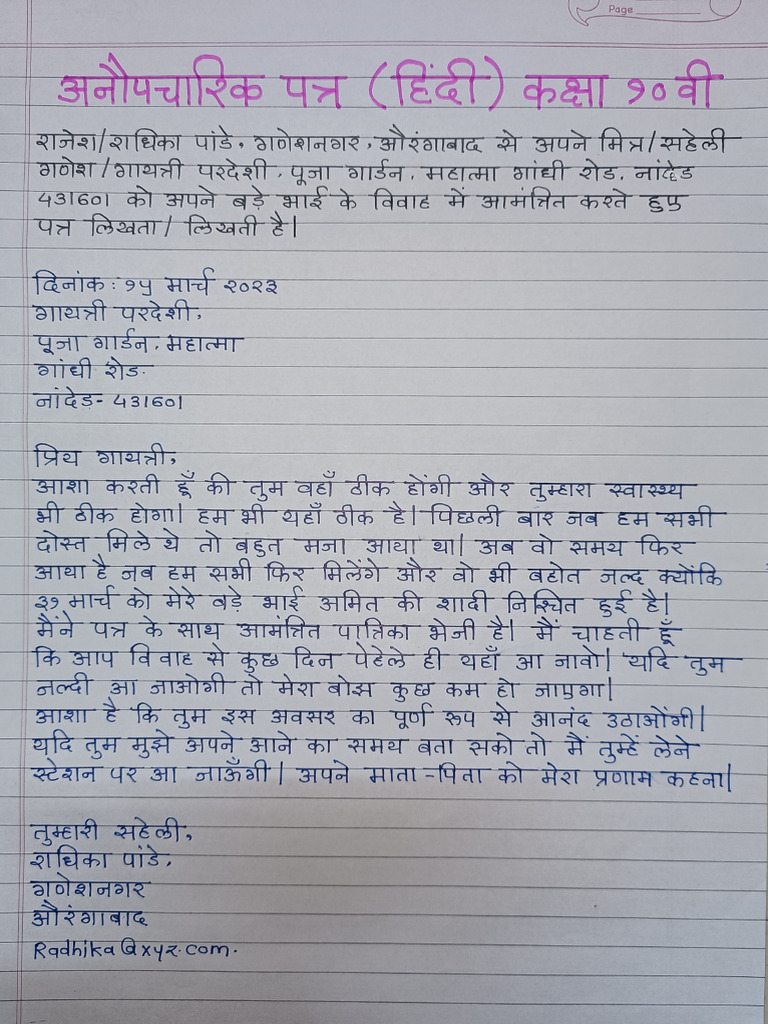 Page
अनौपचारिक पत्र (हिंदी) कक्षा १० वी
राजेश/राधिका पांडे, गणेशनगर, औरंगाबाद से अपने मित्र/सहेली
गणेश/गायत्री परदेशी, पूजा गार्डन, महात्मा गांधी रोड, नांदेड
431601 को अपने बड़े भाई के विवाह में आमंत्रित करते हुए
पत्र लिखता/ लिखती है।
दिनांक: १५ मार्च २०२३
गायत्री परदेशी,
पूजा गार्डन, महात्मा
गांधी रोड.
नांदेड- 431601
प्रिय गायत्री,
आशा करती हूँ की तुम वहाँ ठीक होंगी और तुम्हारा स्वास्थ्य
भी ठीक होगा। हम भी यहाँ ठीक है। पिछली बार जब हम सभी
दोस्त मिले थे तो बहुत मजा आया था। अब वो समय फिर
आया है जब हम सभी फिर मिलेंगे और वो भी बहोत जल्द क्योंकि
३१ मार्च को मेरे बड़े भाई अमित की शादी निश्चित हुई है।
मैंने पत्र के साथ आमंत्रित पात्रिका भेजी है। मैं चाहती हूँ
कि आप विवाह से कुछ दिन पेहेले ही यहाँ आ जावो। यदि तुम
जल्दी आ जाओगी तो मेरा बोझ कुछ कम हो जाएगा।
आशा है कि तुम इस अवसर का पूर्ण रूप से आनंद उठाओंगी।
यदि तुम मुझे अपने आने का समय बता सको तो मैं तुम्हें लेने
स्टेशन पर आ जाऊँगी। अपने माता-पिता को मेरा प्रणाम कहना।
तुम्हारी सहेली,
राधिका पांडे,
गणेशनगर
औरंगाबाद
Radhika@xyz.com.